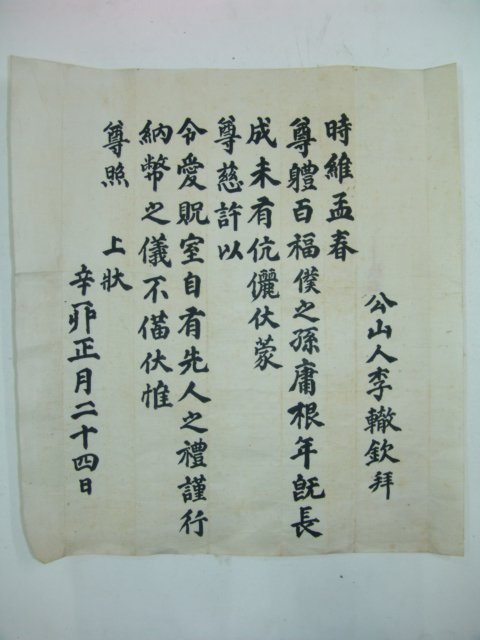 公山人李轍欽拜
時維孟春
尊體百福僕之孫庸根年旣長
成未有伉儷伏蒙
尊慈許以
令愛貺室自有先人之禮謹行
納幣之儀不備伏惟
尊照 上狀
辛卯正月二十四日